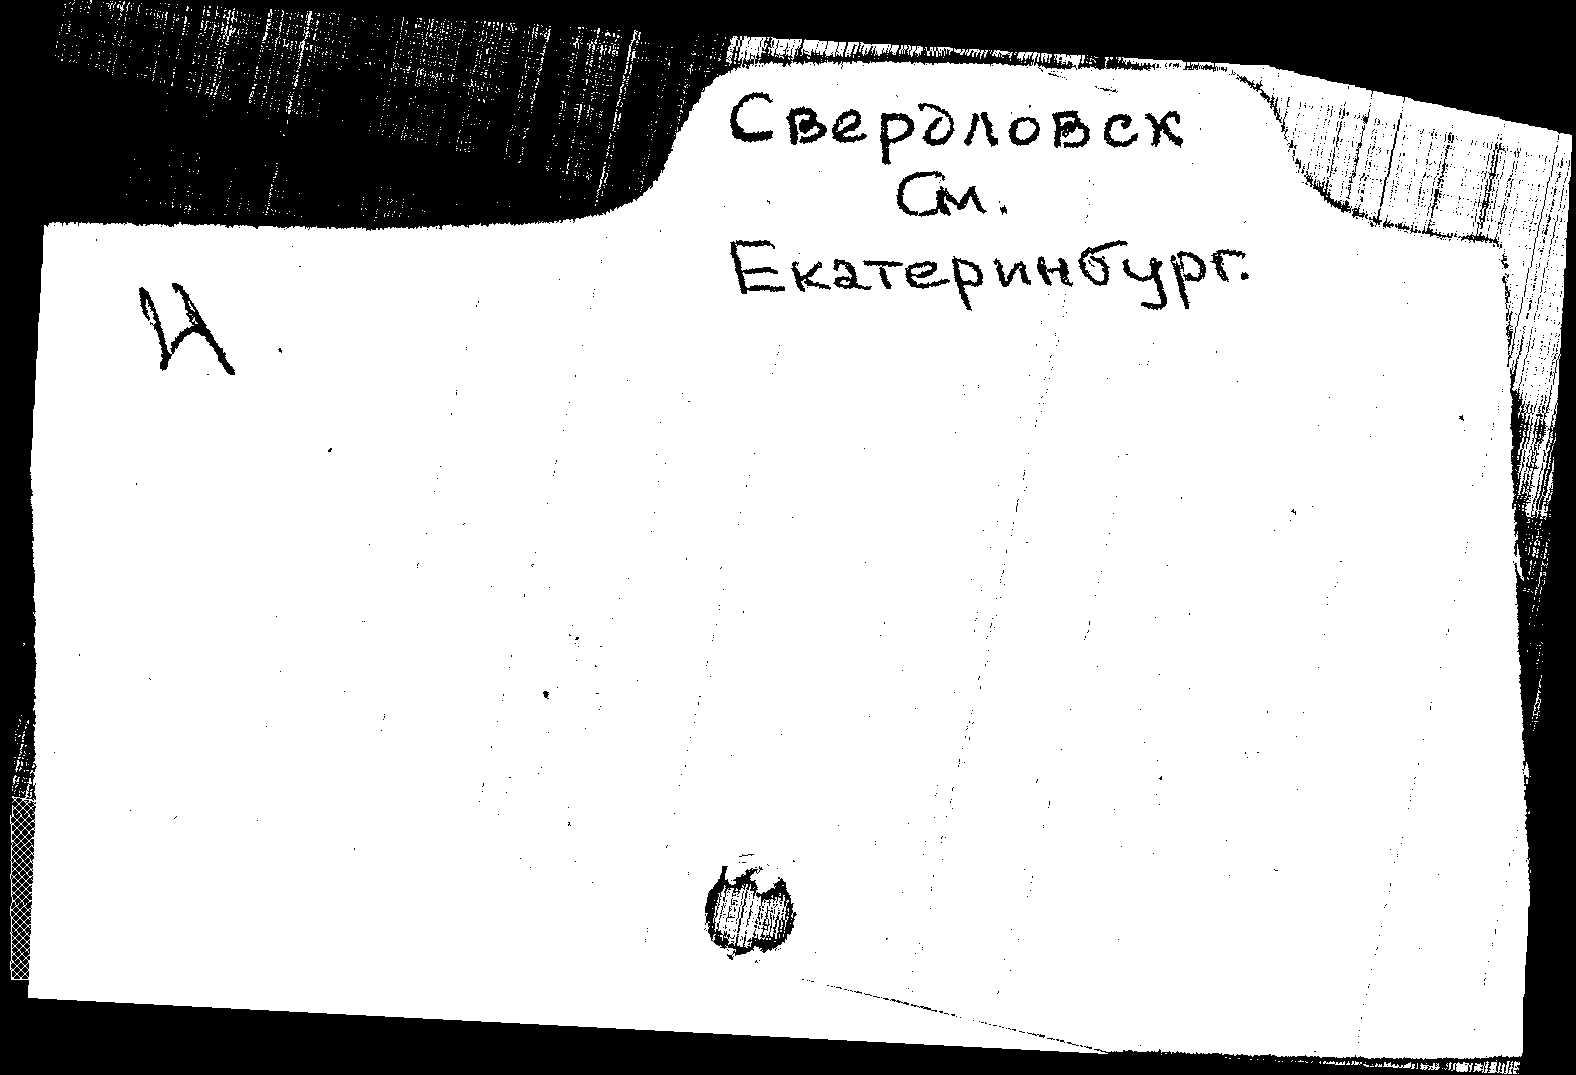 Свердловск
См.
Екатеринбург.
И